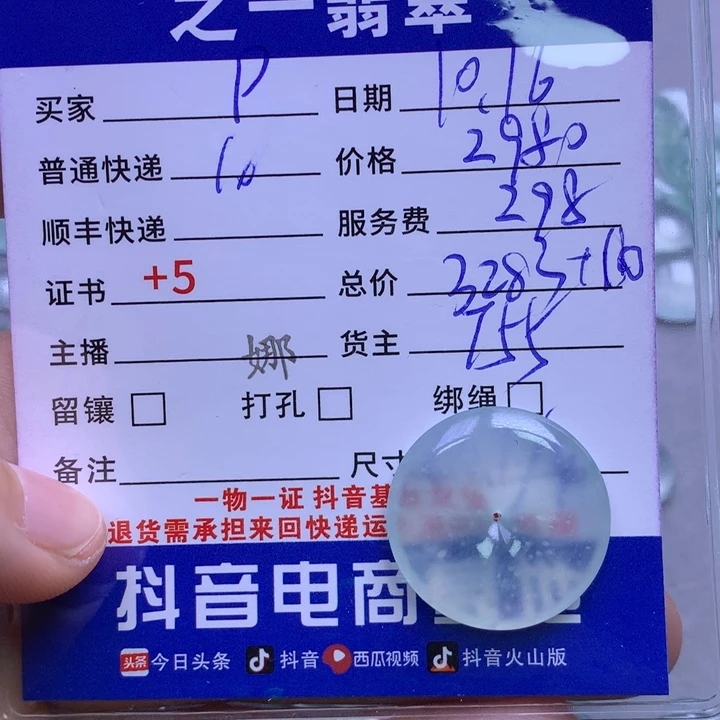 之一翡翠
买家 P 日期 10.16
普通快递 10 价格 2980
顺丰快递 服务费 298
证书 +5 总价 3283+10
主播 娜 货主 T55
留镶 打孔 绑绳
备注 尺寸
一物一证 抖音基
退货需承担来回快递运
抖音电商
头条 今日头条 抖音 西瓜视频 抖音火山版